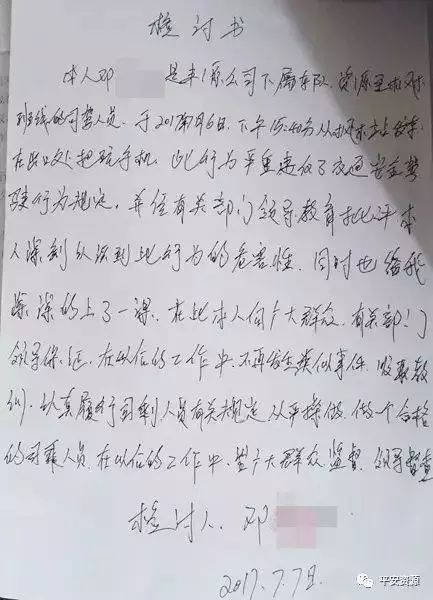 检讨书
本人邓 是丰源公司下属车队,资源至梅溪
班线的司乘人员,于2017年7月6日,下午15:40分从梅溪站发车
在出口处把玩手机,此行为严重违反了交通安全驾
驶行为规定,并经有关部门领导教育批评本
人深刻认识到此行为的危害性,同时也给我
深深的上了一课,在此本人向广大群众,有关部门
领导保证,在以后的工作中,不再发生类似事件,吸取教
训,认真履行司乘人员有关规定从严操做,做一个合格
的司乘人员,在以后的工作中,望广大群众监督,领导督查
检讨人:邓
2017.7.7日
平安资源